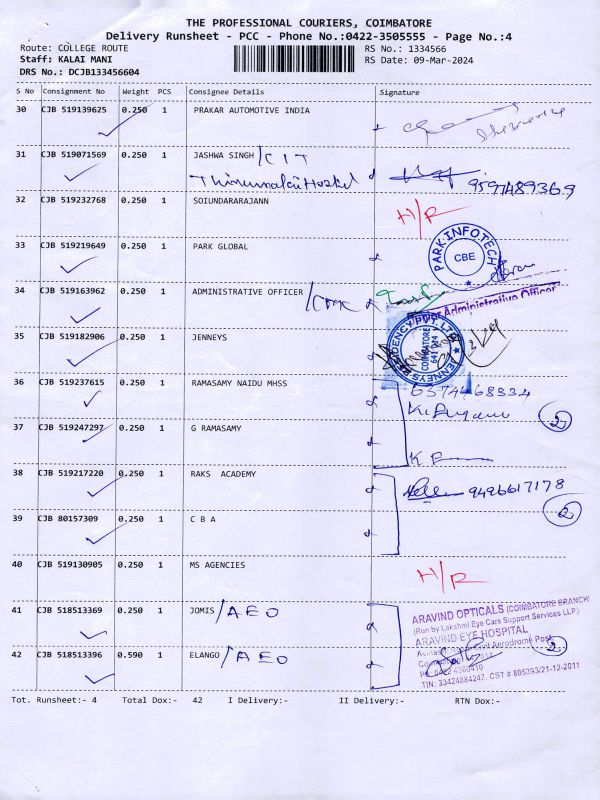 THE PROFESSIONAL COURIERS, COIMBATORE
Delivery Runsheet - PCC - Phone No.:0422-3505555 - Page No.:4
Route: COLLEGE ROUTE RS No.: 1334566
Staff: KALAI MANI RS Date: 09-Mar-2024
DRS No.: DCJB133456604
S No Consignment No Weight PCS Consignee Details Signature
30 CJB 519139625 0.250 1 PRAKAR AUTOMOTIVE INDIA
31 CJB 519071569 0.250 1 JASHWA SINGH / CIT
9597489369
32 CJB 519232768 0.250 1 SOIUNDARARAJANN H/R
33 CJB 519219649 0.250 1 PARK GLOBAL
PARK INFOTECH
CBE
34 CJB 519163962 0.250 1 ADMINISTRATIVE OFFICER
Administrative Officer
35 CJB 519182906 0.250 1 JENNEYS
JENNEYS RESIDENCY PVT. LTD
COIMBATORE
641 014
36 CJB 519237615 0.250 1 RAMASAMY NAIDU MHSS
2
37 CJB 519247297 0.250 1 G RAMASAMY
38 CJB 519217220 0.250 1 RAKS ACADEMY 9496617178
2
39 CJB 80157309 0.250 1 C B A
40 CJB 519130905 0.250 1 MS AGENCIES H/R
41 CJB 518513369 0.250 1 JOMIS / AEO
ARAVIND OPTICALS (COIMBATORE BRANCH)
(Run by Lakshmi Eye Care Support Services LLP.)
ARAVIND EYE HOSPITAL
Aerodrome Post,
2
TIN: 33424884247. CST # 805393/21-12-2011
42 CJB 518513396 0.590 1 ELANGO / AEO
Tot. Runsheet:- 4 Total Dox:- 42 I Delivery:- II Delivery:- RTN Dox:-